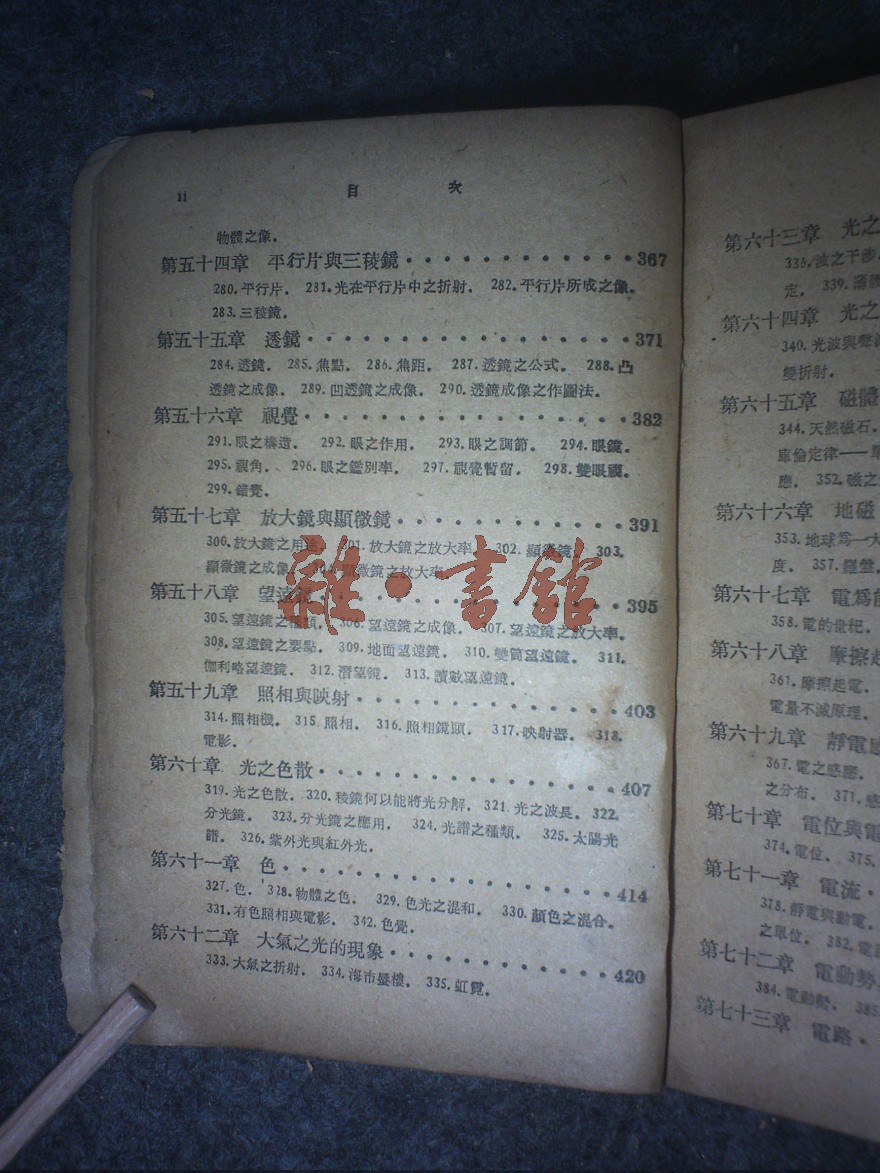 11 目 次
物體之像.
第五十四章 平行片與三稜鏡 367
280.平行片. 281.光在平行片中之折射. 282.平行片所成之像.
283.三稜鏡.
第五十五章 透鏡 371
284.透鏡. 285.焦點. 286.焦距. 287.透鏡之公式. 288.凸
透鏡之成像. 289.凹透鏡之成像. 290.透鏡成像之作圖法.
第五十六章 視覺 382
291.眼之構造. 292.眼之作用. 293.眼之調節. 294.眼鏡.
295.視角. 296.眼之鑑別率. 297.視覺暫留. 298.雙眼視.
299.錯覺.
第五十七章 放大鏡與顯微鏡 391
300.放大鏡之用途. 301.放大鏡之放大率. 302.顯微鏡. 303.
顯微鏡之成像. 304.顯微鏡之放大率.
第五十八章 望遠鏡 395
305.望遠鏡之種類. 306.望遠鏡之成像. 307.望遠鏡之放大率.
308.望遠鏡之要點. 309.地面望遠鏡. 310.雙筒望遠鏡. 311.
伽利略望遠鏡. 312.潛望鏡. 313.讀數望遠鏡.
第五十九章 照相與映射 403
314.照相機. 315.照相. 316.照相鏡頭. 317.映射器. 318.
電影.
第六十章 光之色散 407
319.光之色散. 320.稜鏡何以能將光分解. 321.光之波長. 322.
分光鏡. 323.分光鏡之應用. 324.光譜之種類. 325.太陽光
譜. 326.紫外光與紅外光.
第六十一章 色 414
327.色. 328.物體之色. 329.色光之混和. 330.顏色之混合.
331.有色照相與電影. 342.色覺.
第六十二章 大氣之光的現象 420
333.大氣之折射. 334.海市蜃樓. 335.虹霓.
雜·書館
第六十三章 光之
336.波之干涉.
定. 339.
第六十四章 光之
340.光波與聲
雙折射.
第六十五章 磁體
344.天然磁石.
庫倫定律——
應. 352.磁之
第六十六章 地磁
353.地球爲一大
度. 357.羅盤.
第六十七章 電爲
358.電的世
第六十八章 摩擦起
361.摩擦起電.
電量不滅原理.
第六十九章 靜電感
367.電之感應.
之分布. 371.
第七十章 電位與電
374.電位. 375.
第七十一章 電流
378.靜電與動電.
之單位. 382.電
第七十二章 電動勢
384.電動勢. 385.
第七十三章 電路